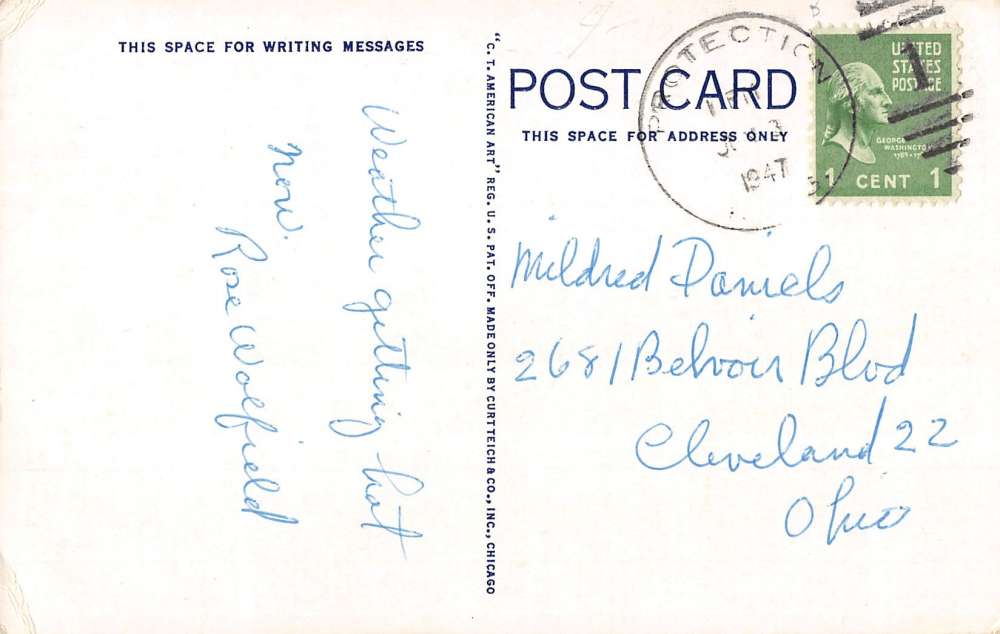 THIS SPACE FOR WRITING MESSAGES
Weather getting hot
now.
Rose Wolfield
"C. T. AMERICAN ART" REG. U. S. PAT. OFF. MADE ONLY BY CURT TEICH & CO., INC., CHICAGO
POST CARD
THIS SPACE FOR ADDRESS ONLY
PROTECTION
1947
UNITED
STATES
POSTAGE
GEORGE
WASHINGTON
1 CENT 1
Mildred Daniels
2681 Belvoir Blvd
Cleveland 22
Ohio